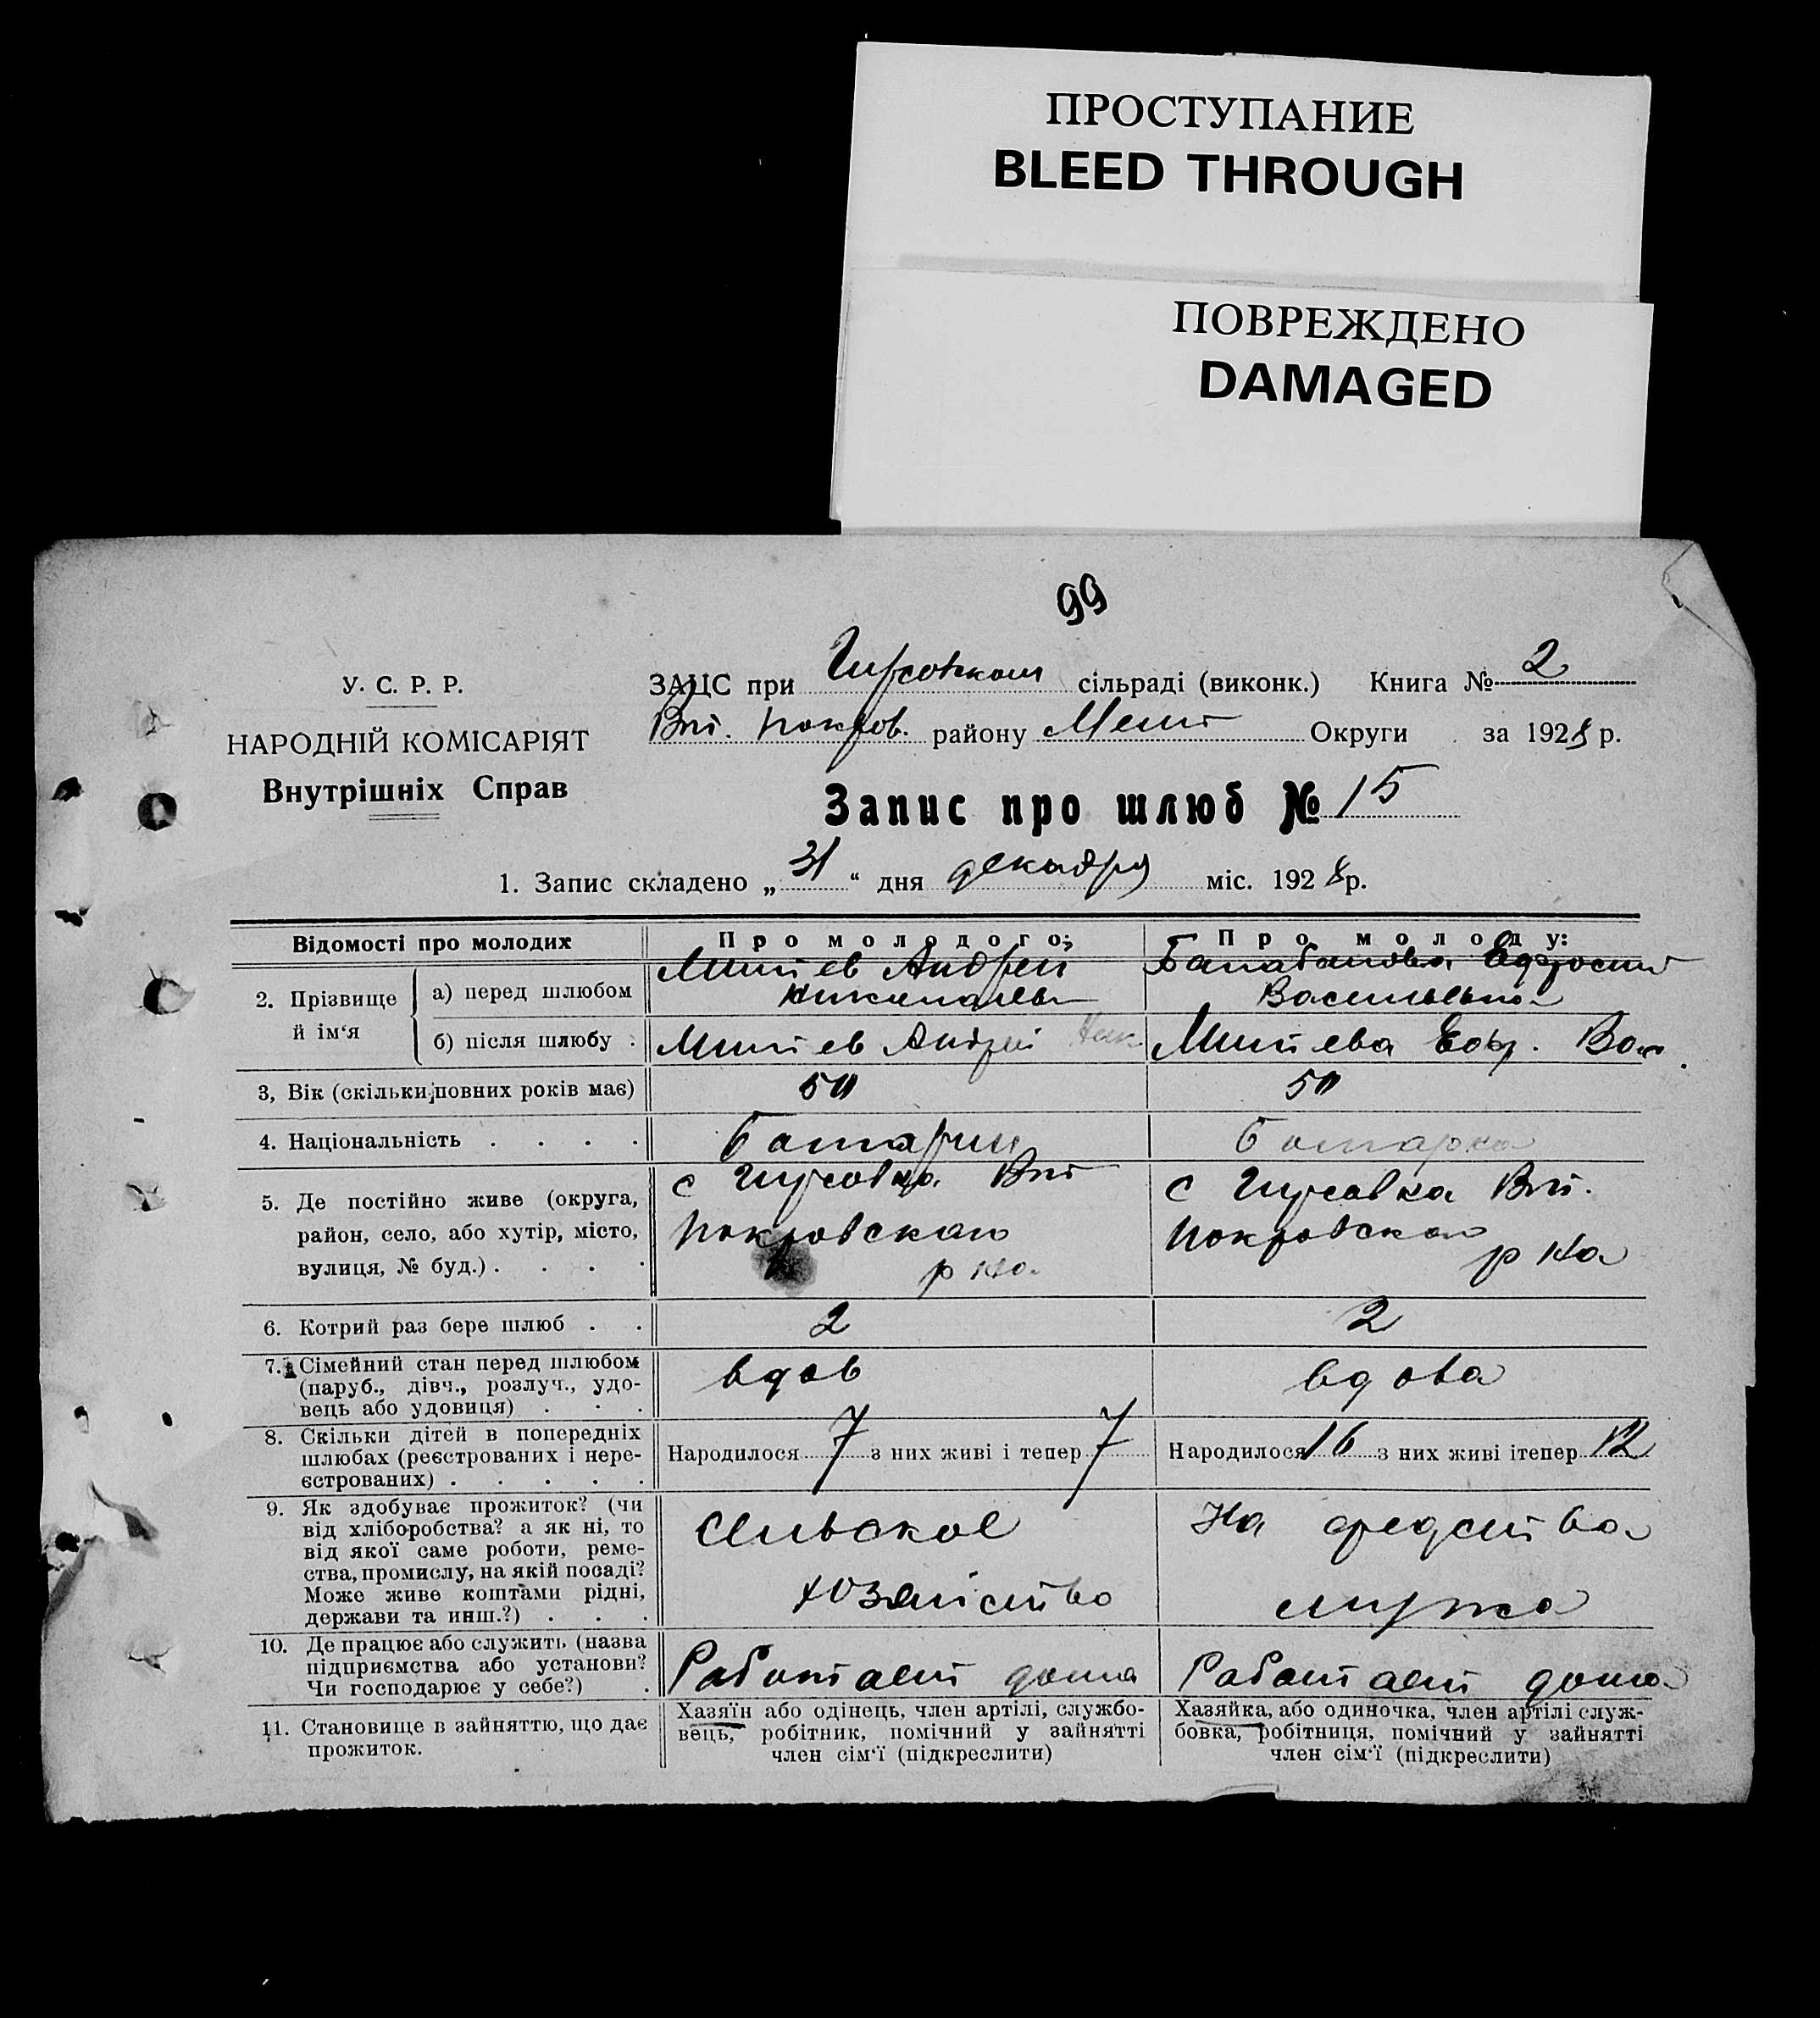 ПРОСТУПАНИЕ
BLEED THROUGH
ПОВРЕЖДЕНО
DAMAGED
99
У. С. Р. Р.
НАРОДНІЙ КОМІСАРІЯТ
Внутрішніх Справ
ЗАЦС при Гирсовком сільраді (виконк.) Книга № 2
Вт. Покров. району Меліт Округи за 1928 р.
Запис про шлюб № 15
1. Запис складено „ 31 “ дня декабря міс. 1928 р.
Відомості про молодих
Про молодого:
Про молоду:
2. Прізвище й ім‘я
а) перед шлюбом
Митев Андрей
Балабанова Ефросин
Васильевна
б) після шлюбу :
Митев Андрей Ник
Митева Ефр. Вас.
3, Вік (скільки повних років має)
50
50
4. Національність . . . .
болгарин
болгарка
5. Де постійно живе (округа,
район, село, або хутір, місто,
вулиця, № буд.) . . . .
с Гирсовка Вт
Покровскаго
р на
с Гирсовка Вт.
Покровскаго
р на
6. Котрий раз бере шлюб . .
2
2
7. Сімейний стан перед шлюбом
(паруб., дівч., розлуч., удо-
вець або удовиця) . . .
вдов
вдова
8. Скільки дітей в попередніх
шлюбах (реєстрованих і нере-
єстрованих) . . . . .
Народилося 7 з них живі і тепер 7
Народилося 16 з них живі ітепер 12
9. Як здобуває прожиток? (чи
від хліборобства? а як ні, то
від якої саме роботи, реме-
ства, промислу, на якій посаді?
Може живе коштами рідні,
держави та инш.?) . . .
Сильское
хозяйство
На средства
мужа
10. Де працює або служить (назва
підприємства або установи?
Чи господарює у себе?) .
Работает дома
Работает дома
11. Становище в зайняттю, що дає
прожиток.
Хазяїн або одінець, член артілі, службо-
вець, робітник, помічний у зайнятті
член сім‘ї (підкреслити)
Хазяйка, або одиночка, член артілі служ-
бовка, робітниця, помічний у зайнятті
член сім‘ї (підкреслити)